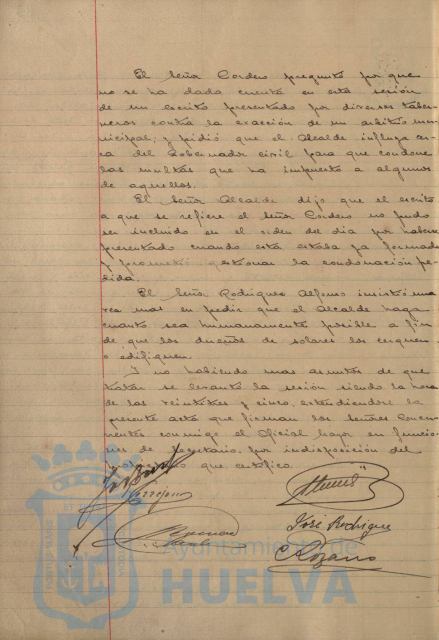 El Señor Cordero preguntó por que
no se ha dado cuenta en esta sesión
de un escrito presentado por diversos taber-
neros contra la exacción de un arbitrio mu-
nicipal, y pidió que el Alcalde influya cer-
ca del Gobernador civil para que condone
las multas que ha impuesto a algunos
de aquellos.
El Señor Alcalde dijo que el escrito
a que se refiere el Señor Cordero no pudo
ser incluido en el orden del dia por haberse
presentado cuando esta estaba ya formada
y prometió gestionar la condonación pe-
dida.
El Señor Rodriguez Alfonso insistió una
vez mas en pedir que el Alcalde haga
cuanto sea humanamente posible a fin
de que los dueños de solares los cerquen
o edifiquen.
Y no habiendo mas asuntos de que
tratar se levantó la sesión siendo la hora
de las veintitres y cinco, extendiendose la
presente acta que firman los señores Concu-
rrentes conmigo el Oficial mayor en funcio-
nes de Secretario por indisposición del
que certifico.
José Rodrigue
Lozano
Ayuntamiento de
HUELVA